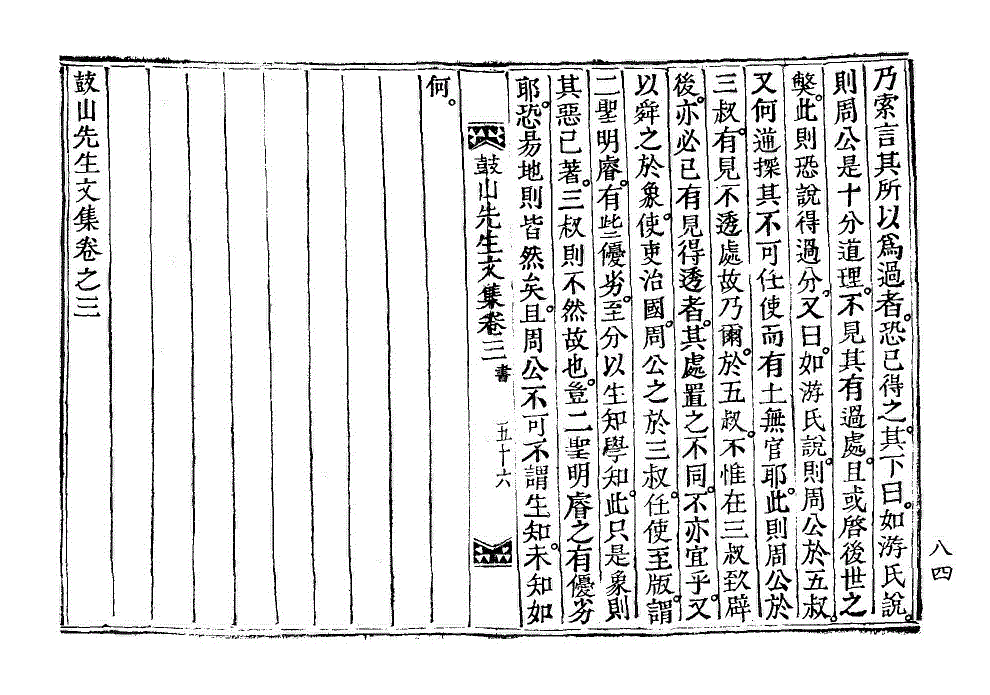 乃索言其所以爲過者。恐已得之。其下曰。如游氏說。
則周公是十分道理。不見其有過處。且或啓後世之
弊。此則恐說得過分。又曰。如游氏說。則周公於五叔。
又何逆探其不可任使而有土無官耶。此則周公於
三叔。有見不透處故乃爾。於五叔。不惟在三叔致辟
後。亦必已有見得透者。其處置之不同。不亦宜乎。又
以舜之於象。使吏治國。周公之於三叔。任使至版。謂
二聖明睿。有些優劣。至分以生知學知。此只是象則
其惡已著。三叔則不然故也。豈二聖明睿之有優劣
耶。恐易地則皆然矣。且周公不可不謂生知。未知如
何。
鼓山先生文集卷三 書 五十六
鼓山先生文集卷之三
八四